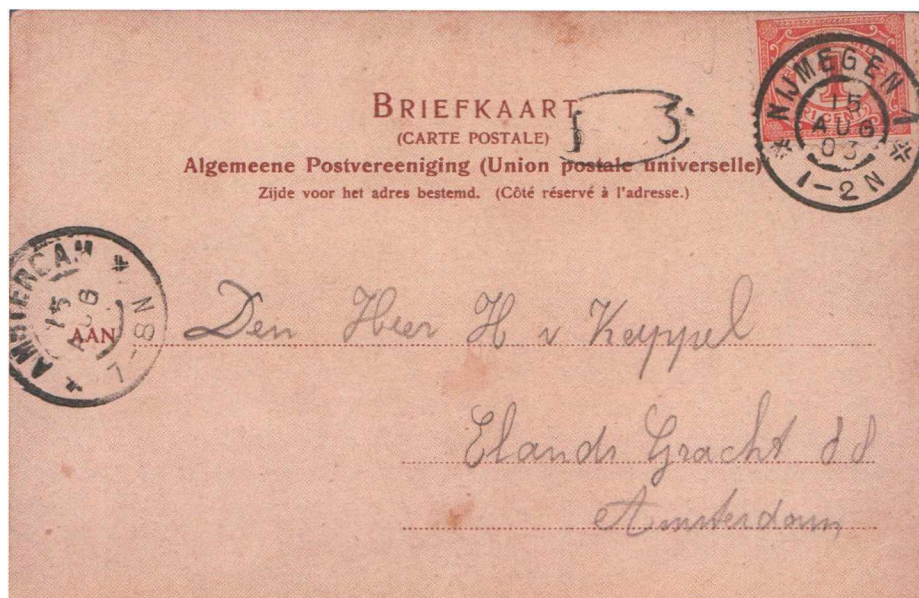 BRIEFKAART
(CARTE POSTALE)
Algemeene Postvereeniging (Union postale universelle)
Zijde voor het adres bestemd. (Côté réservé à l'adresse.)
1
CENT
NIJMEGEN 1
15
AUG
03
1-2N
3
AMSTERDAM
15
AUG
7-8N
AAN Den Heer H v Kappel
Elands Gracht 88
Amsterdam